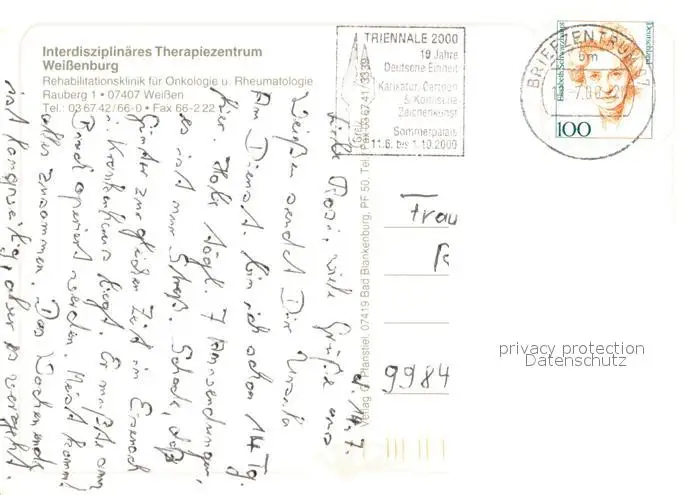 Interdisziplinäres Therapiezentrum
Weißenburg
Rehabilitationsklinik für Onkologie u. Rheumatologie
Rauberg 1 • 07407 Weißen
Tel.: 03 67 42/66-0 • Fax 66-2 22
TRIENNALE 2000
10 Jahre
Deutsche Einheit
Karikatur, Cartoon
& Komische
Zeichenkunst
Sommerpalais
11.6. bis 1.10.2000
BRIEFZENTRUM 07
bm
Deutschland
100
d. 14.7.
Liebe Rosi, viele Grüße aus
Weißen sendet Dir Ursula
Am Dienst. bin ich schon 14 Tg.
hier. Habe tägl. 7 Anwendungen,
es ist nur Streß. Schade, daß
Günter zur gleichen Zeit in Eisenach
i. Krankenhaus liegt. Er mußte am
Bauch operiert werden. Meist kommt
alles zusammen. Das Wochenende
ist langweilig, aber es vergeht.
Planstiel, 07419 Bad Blankenburg, PF 50, Tel.
Frau
R
9984
privacy protection
Datenschutz